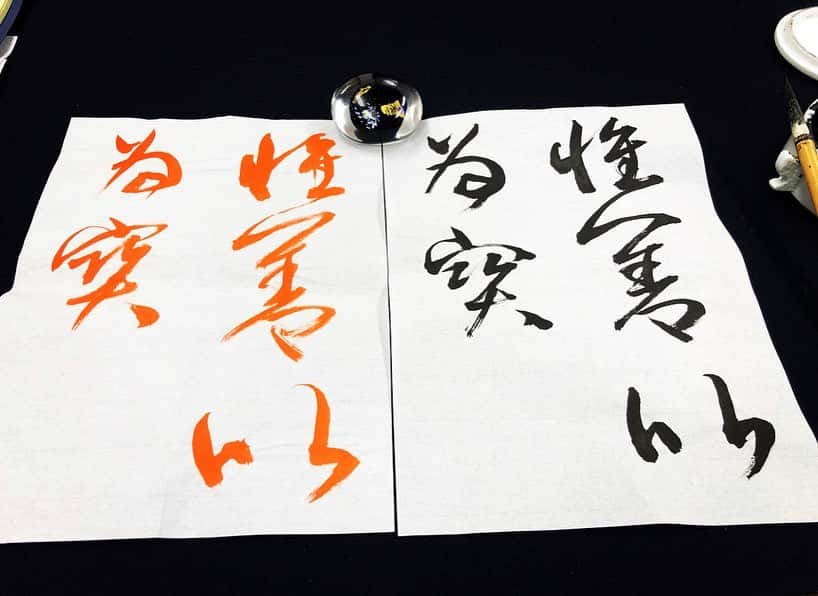 惟善以
為寶
惟善以
為寶